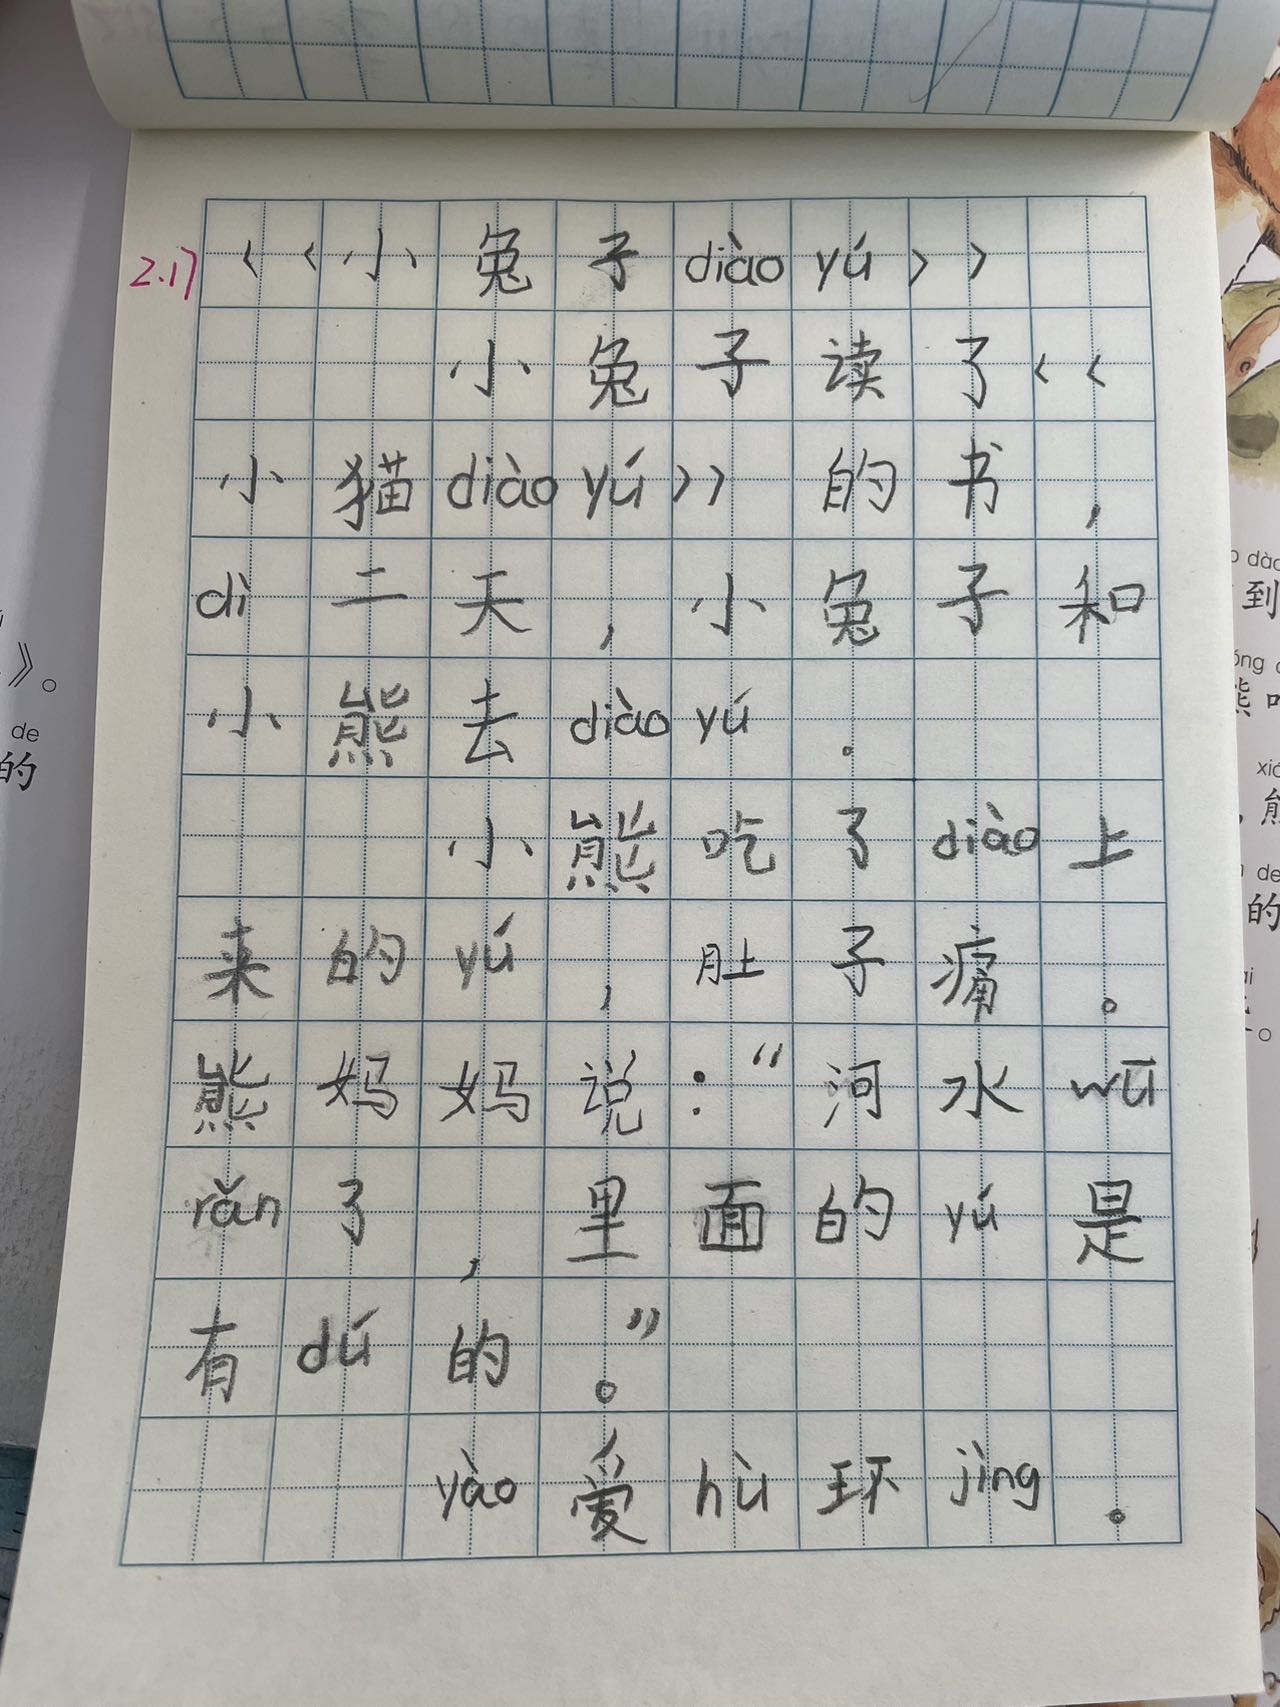 2.17
《小兔子diào yú》
小兔子读了《
小猫diào yú》的书，
dì二天，小兔子和
小熊去diào yú。
小熊吃了diào上
来的yú，肚子痛。
熊妈妈说：“河水wū
rǎn了，里面的yú是
有dú的。”
yào爱hù环jìng。
》。
de
的
到
熊
de
的